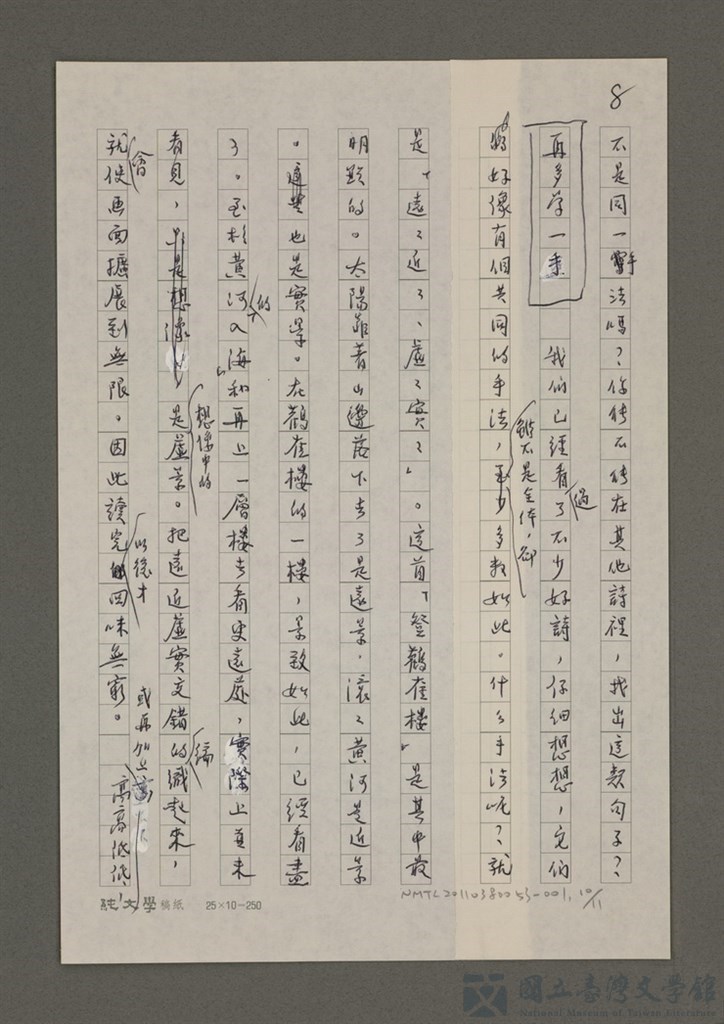 8
不是同一手法嗎？你能不能在其他詩裡，找出這類句子？
再多学一点　我们已經看过了不少好詩，仔細想想，它们
將好像有個共同的手法，雖不是全体，卻多数如此。什么手法呢？就
是「遠遠近近、虛虛實實」。這首「登鸛雀樓」是其中最
明顯的。太陽靠着山邊落下去了是遠景，滾滾黃河是近景
。這些也是實景。在鸛雀樓的一樓，景致如此，已經看盡
了。至於黃河的入海和再上一層樓去看更遠處，實際上並未
看見，是想像中的虛景。把遠近虛實交錯的編織起來，
就會使画面擴展到無限。因此讀完以後才回味無窮。或再加上高高低低，
純文學 稿紙 25×10=250
NMTL20110380053-001, 10/11
國立臺灣文學館
National Museum of Taiwan Literature